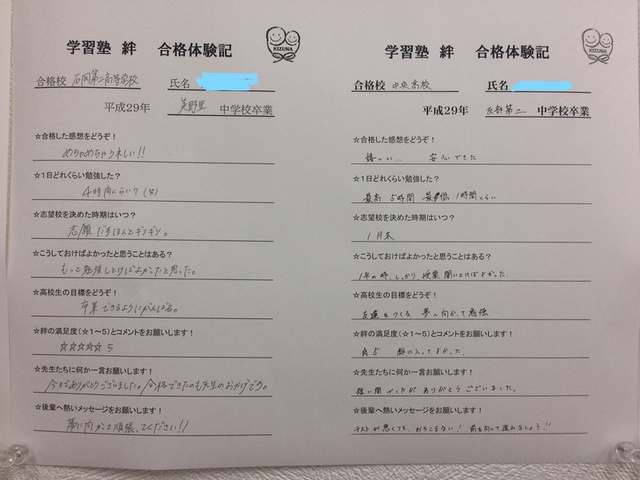 学習塾 絆 合格体験記
KIZUNA
合格校 石岡第二高等学校 氏名
平成29年 美野里 中学校卒業
☆合格した感想をどうぞ！
めちゃめちゃうれしい!!
☆1日どれくらい勉強した？
4時間くらい？
☆志望校を決めた時期はいつ？
志願だすほんとギリギリ。
☆こうしておけばよかったと思うことはある？
もっと勉強しとけばよかったと思った。
☆高校生の目標をどうぞ！
卒業できるようにがんばる。
☆絆の満足度(☆1～5)とコメントをお願いします！
☆☆☆☆☆ 5
☆先生たちに何か一言お願いします！
今までありがとうございました。合格できたのも先生のおかげです。
☆後輩へ熱いメッセージをお願いします！
夢に向かって頑張ってください!!
学習塾 絆 合格体験記
KIZUNA
合格校 中央高校 氏名
平成29年 第二 中学校卒業
☆合格した感想をどうぞ！
嬉しい… 安心できた
☆1日どれくらい勉強した？
最高 5時間 最低 1時間くらい
☆志望校を決めた時期はいつ？
1月末
☆こうしておけばよかったと思うことはある？
1年の時、しっかり授業聞いとけばよかった.
☆高校生の目標をどうぞ！
友達をつくる 夢へ向かって勉強
☆絆の満足度(☆1～5)とコメントをお願いします！
☆5 絆に入ってよかった.
☆先生たちに何か一言お願いします！
短い間でしたが ありがとうございました.
☆後輩へ熱いメッセージをお願いします！
テストが悪くても、おちこまない! 前を向いて進みましょう!!